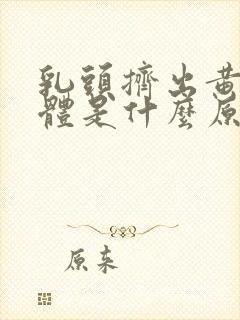 乳頭擠出黃
體是什麼原
原来